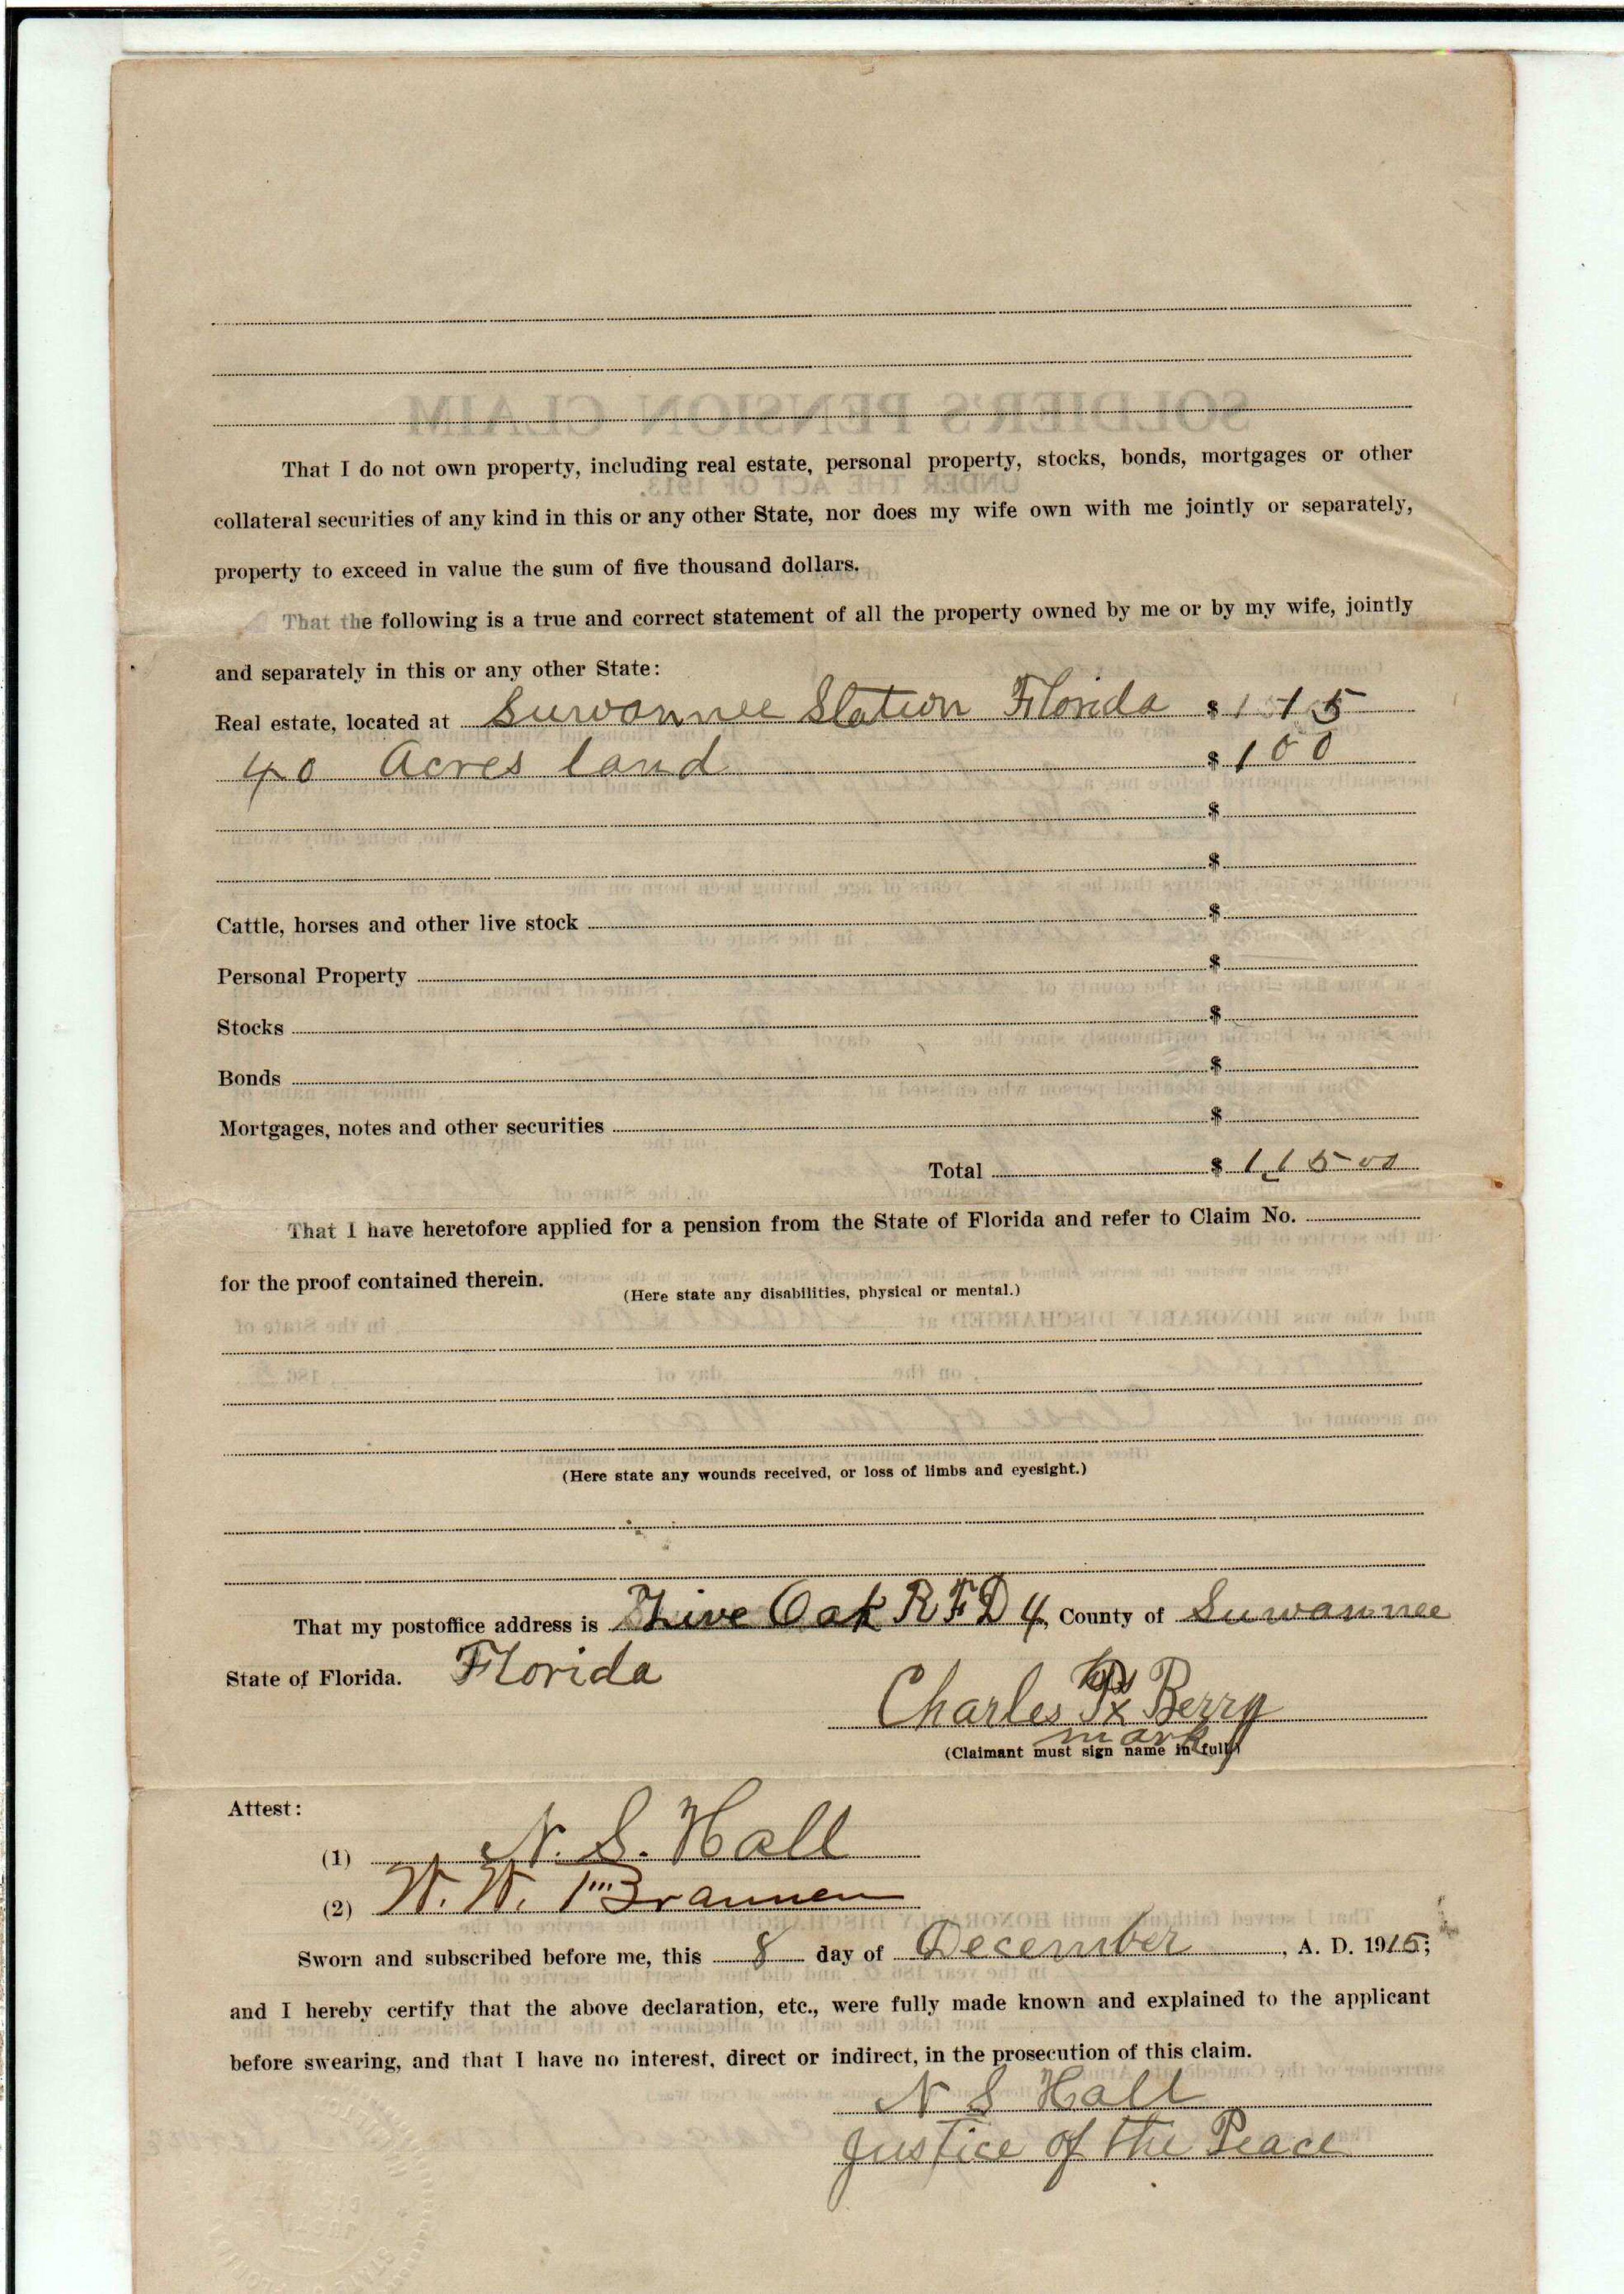 That I do not own property, including real estate, personal property, stocks, bonds, mortgages or other
collateral securities of any kind in this or any other State, nor does my wife own with me jointly or separately,
property to exceed in value the sum of five thousand dollars.
That the following is a true and correct statement of all the property owned by me or by my wife, jointly
and separately in this or any other State:
Real estate, located at Suwannee Station Florida $
40 Acres land $ 100
$
$
Cattle, horses and other live stock $
Personal Property $
Stocks $
Bonds $
Mortgages, notes and other securities $
Total $ 115 00
That I have heretofore applied for a pension from the State of Florida and refer to Claim No.
for the proof contained therein.
(Here state any disabilities, physical or mental.)
(Here state any wounds received, or loss of limbs and eyesight.)
That my postoffice address is Live Oak R F D 4 County of Suwannee
State of Florida. Florida
his
Charles P x Berry
mark
(Claimant must sign name in full)
Attest:
(1) N. S. Hall
(2) W. W. Brannen
Sworn and subscribed before me, this 8 day of December, A. D. 1915;
and I hereby certify that the above declaration, etc., were fully made known and explained to the applicant
before swearing, and that I have no interest, direct or indirect, in the prosecution of this claim.
N S Hall
Justice of the Peace